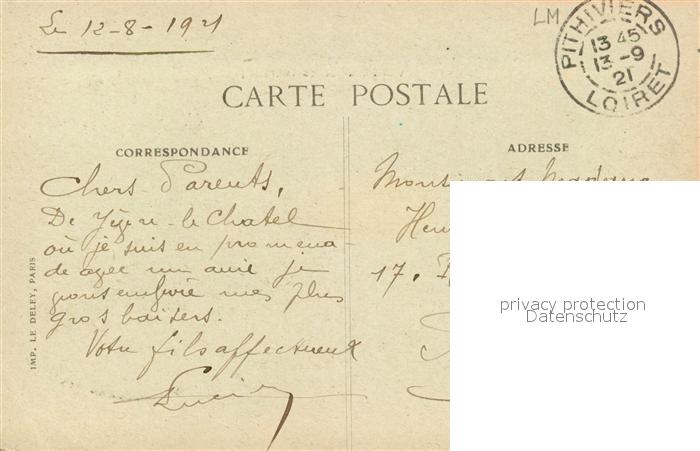 Le 12-8-1921
LM
PITHIVIERS
13 45
13 -9
21
LOIRET
CARTE POSTALE
CORRESPONDANCE
ADRESSE
Chers Parents,
De Yèvre-le-Chatel
où je suis en promena-
de avec un ami je
vous envoie mes plus
gros baisers.
Votre fils affectueux
Lucien
Monsieur et Madame
Hen
17,
IMP. LE DELEY, PARIS
privacy protection
Datenschutz